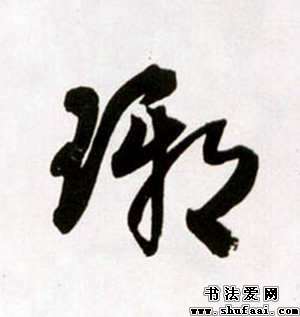 琊
书法爱网
www.shufaai.com